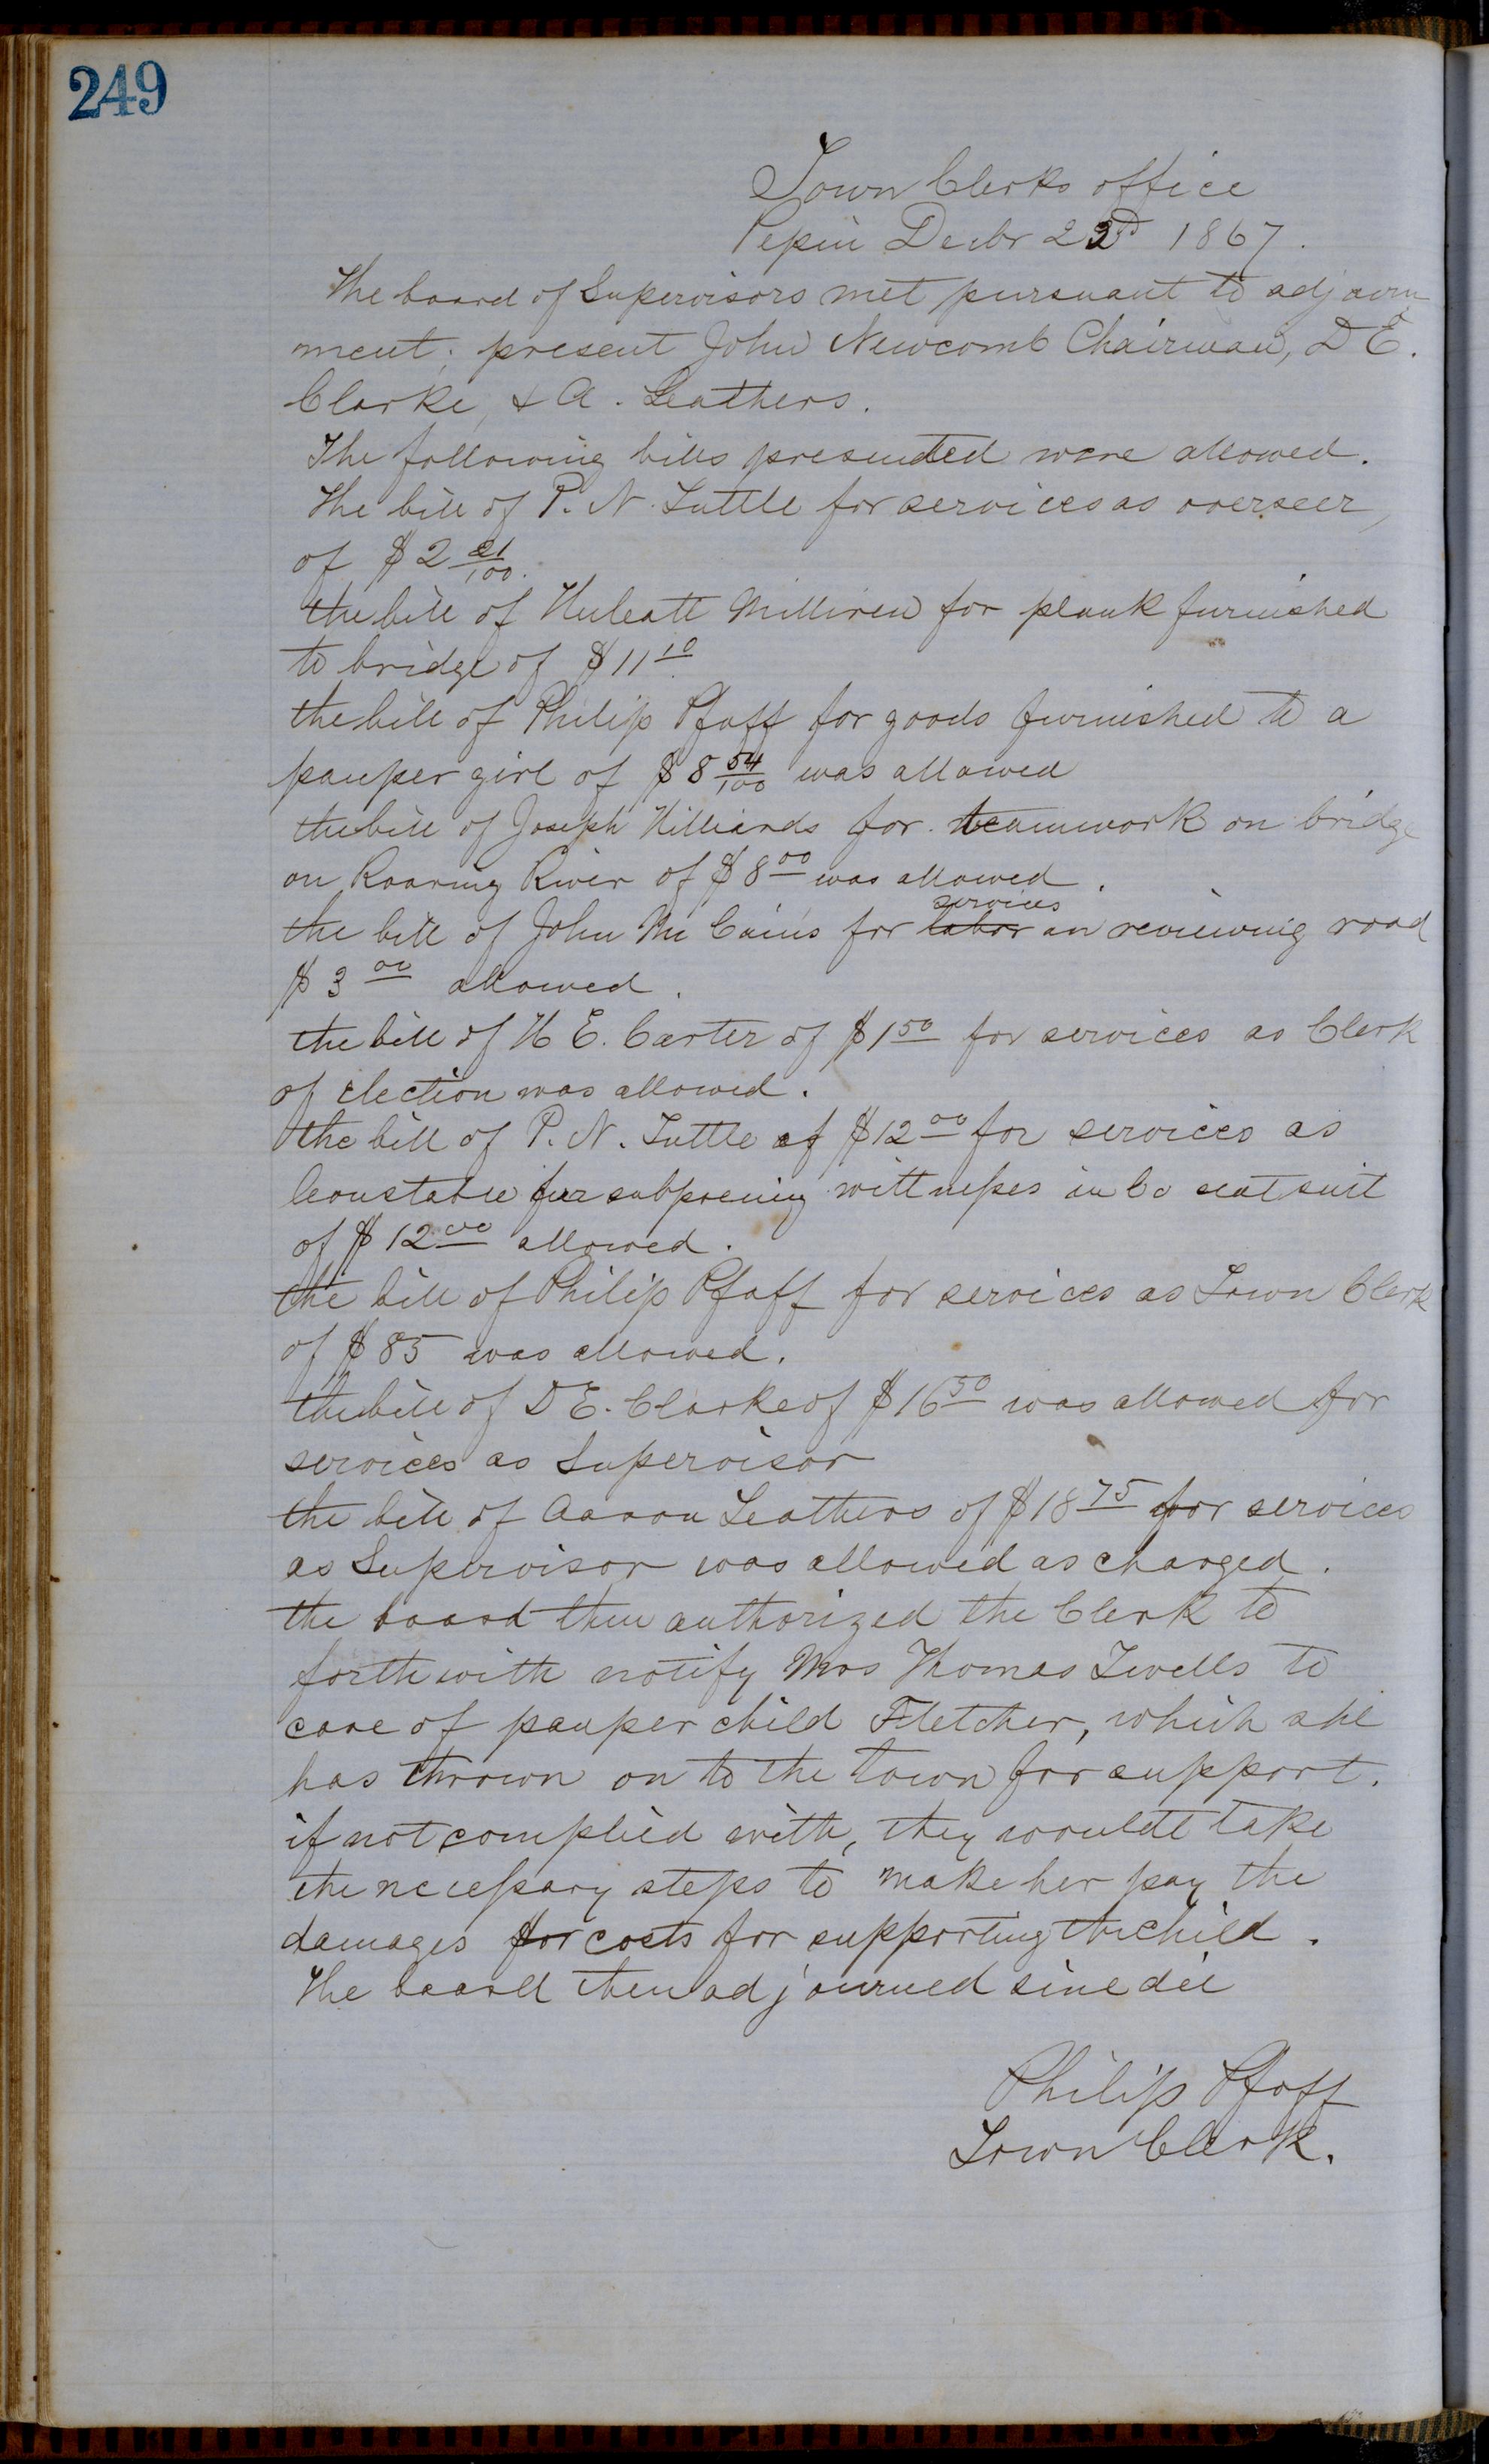 249
Town Clerks office
Pepin Decbr 23d 1867.
The board of Supervisors met pursuant to adjourn
ment; present John Newcomb Chairman, D E.
Clarke, & A. Leathers.
The following bills presented were allowed.
The bill of P. N. Tuttle for services as overseer,
of $2 21/100.
the bill of Milliren for plank furnished
to bridge of $11 10
the bill of Philip Pfaff for goods furnished to a
pauper girl of $8 54/100 was allowed
the bill of Joseph Hilliards for teamwork on bridge
on Roaring River of $8 00 was allowed.
the bill of John Mc Cains for labor services on reviewing road
$3 00 allowed.
the bill of H E. Carter of $1 50 for services as Clerk
of election was allowed.
the bill of P. N. Tuttle of $12 00 for services as
Constable for subpoening wittnesses in Co seat suit
of $12 00 allowed.
the bill of Philip Pfaff for services as Town Clerk
of $85 was allowed.
the bill of D E. Clarke of $16 50 was allowed for
services as Supervisor
the bill of Aaron Leathers of $18 75 for services
as Supervisor was allowed as charged.
the board then authorized the Clerk to
forthwith notify Mrs Thomas Twells to
care of pauper child Fletcher, which she
has thrown on to the town for support.
if not complied with, they would take
the necessary steps to make her pay the
damages for costs for supporting the child.
The board then adjourned sine die
Philip Pfaff
Town Clerk.